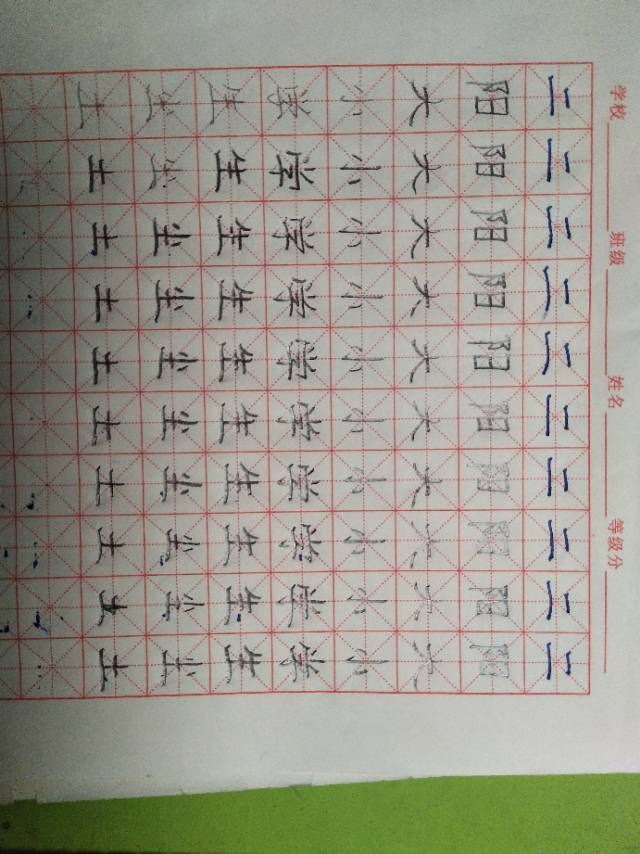 学校 班级 姓名 等级分
二二二二二二二二二二
阳阳阳阳阳阳阳阳阳阳
大大大大大大大大大大
小小小小小小小小小小
学学学学学学学学学学
生生生生生生生生生生
尘尘尘尘尘尘尘尘尘尘
土土土土土土土土土土